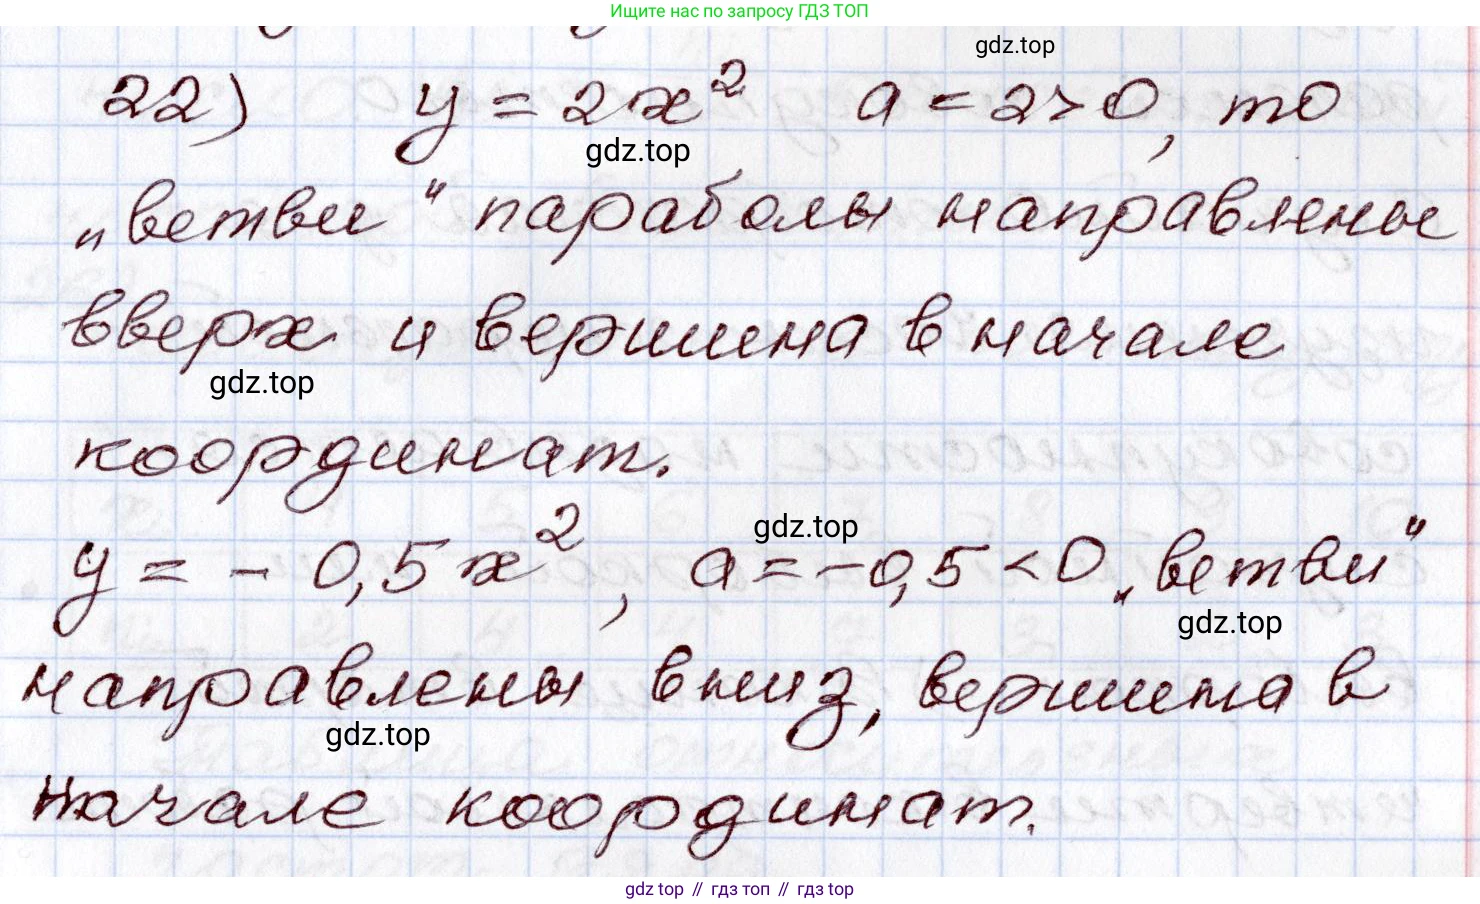 Ищите нас по запросу ГДЗ ТОП
gdz.top
22) y = 2x² a = 2 > 0, то
gdz.top
„ветви“ параболы направлены
вверх и вершина в начале
gdz.top
координат.
gdz.top
y = - 0,5x², a = -0,5 < 0 „ветви“
gdz.top
направлены вниз, вершина в
gdz.top
начале координат.
gdz top // гдз топ // gdz top